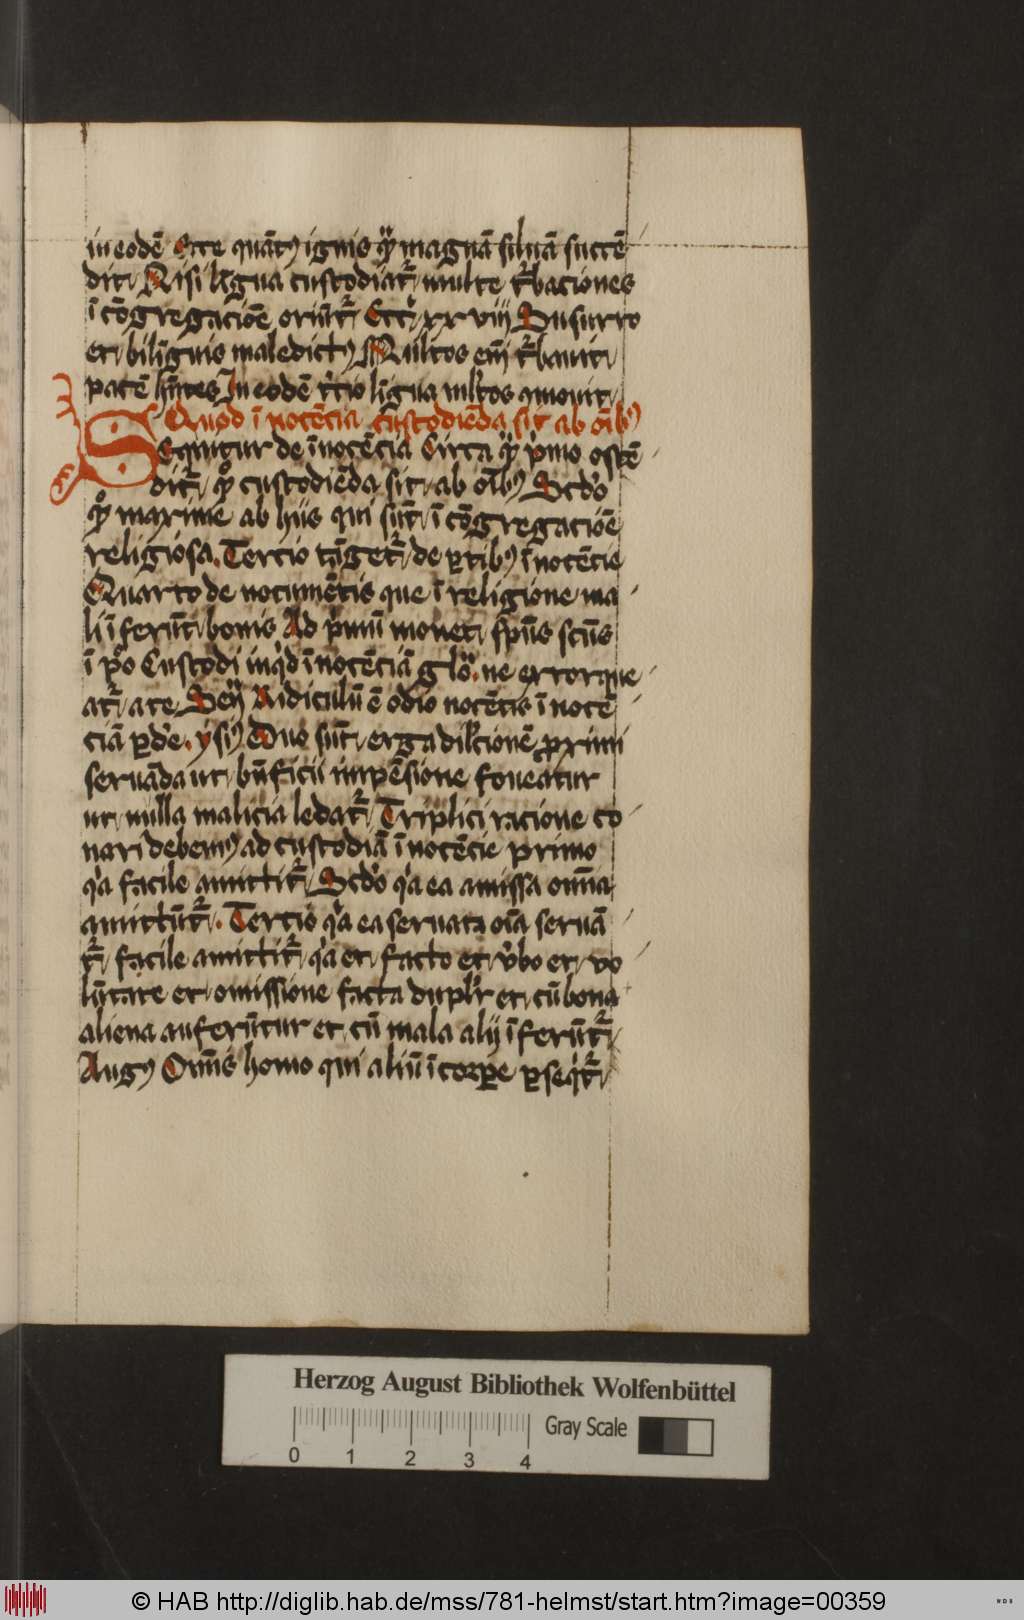 in eodē Ecce quātꝰ ignis q̄ magnā siluā succē
dit Nisi līgua custodiat᷑ multe t᷑baciones
ī cōgregacioē oriūt᷑ Ecc͛ xxviij Susurro
et biliguis maledictꝰ Multos em̄ t᷑bauit
pacē hn̄tes In eodē t͛cio līgua ml̄tos
Quod īnocēcia custodiēda sit ab oībꝰ
Sequitur de īnocēcia Circa q̄ pͥmo ostē
dit᷑ qͦ custodiēda sit ab oībꝰ Scd̓o
qͦ maxime ab hiis qui sūt ī cōgregacioē
religiosa Tercio tāget᷑ de ꝑtibꝰ īnocēcie
Quarto de nocumētis que ī religione ma
li īferūt bonis Ad pͥmū monet sp̄us scūs
ī p̄o Custodi inqͥd īnocēciā ne error que
at᷑ a te Ridiculū ē odio nocētis īnocē
ciā ꝑd̓e ysiꝰ Due sūt erga dilc̄ionē ꝓximi
seruāda ut bn̄ficii impēsione foueatur
ut nulla malicia ledat᷑ Triplici racione co
nari debemꝰ ad custodiā īnocēcie primo
qͥa facile amittit᷑ Scd̓o qͥa ea amissa omīa
amittūt᷑ Tercio qͥa ea seruata oīa seruā
t᷑ facile amittit᷑ qͥa et facto et v̓bo et vo
lūtate et omissione facta dupl̓r et cū bona
aliena auferūtur et cū mala alij īferūt᷑
Augꝰ Om̄is homo qui aliū ī corꝑe ꝑseqͥt᷑
Herzog August Bibliothek Wolfenbüttel
Gray Scale
0 1 2 3 4
© HAB http://diglib.hab.de/mss/781-helmst/start.htm?image=00359